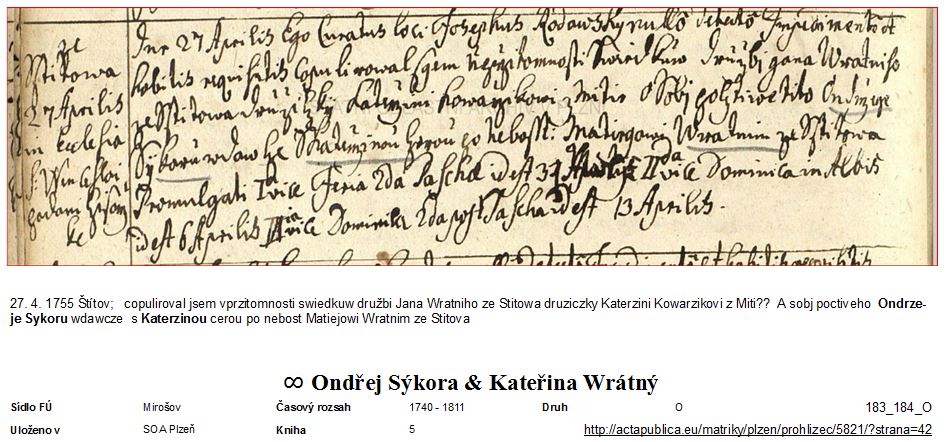 ze
Sstitowa
27 Aprilis
in Ecclesia
Die 27 Aprilis Ego Curatus loci Josephus nullo detecto Impedimento et
habitis requisitis copulirowal gsem wprzitomnosti Swiedkuw Družbi Jana Wratniho
ze Sstitowa družičky Katerzini Kowarzikowi z Mitie Osobi poctiweho Ondrzege
Sykoru wdawce s Katerzinou czerou po neboss: Matiegowi Wratnim ze Sstitowa
Promulgati I vice Feria 2da Pascha id est 31 II da vice Dominica in Albis
id est 6 Aprilis III tia vice Dominica 2da post Pascha id est 13 Aprilis.
27. 4. 1755 Štítov; copuliroval jsem vprzitomnosti swiedkuw družbi Jana Wratniho ze Stitowa druziczky Katerzini Kowarzikovi z Miti?? A sobj poctiveho Ondrze-
je Sykoru wdawcze s Katerzinou cerou po nebost Matiejowi Wratnim ze Stitova
∞ Ondřej Sýkora & Kateřina Wrátný
Sídlo FÚ Mirošov Časový rozsah 1740 - 1811 Druh O 183_184_O
Uloženo v SOA Plzeň Kniha 5 http://actapublica.eu/matriky/plzen/prohlizec/5821/?strana=42